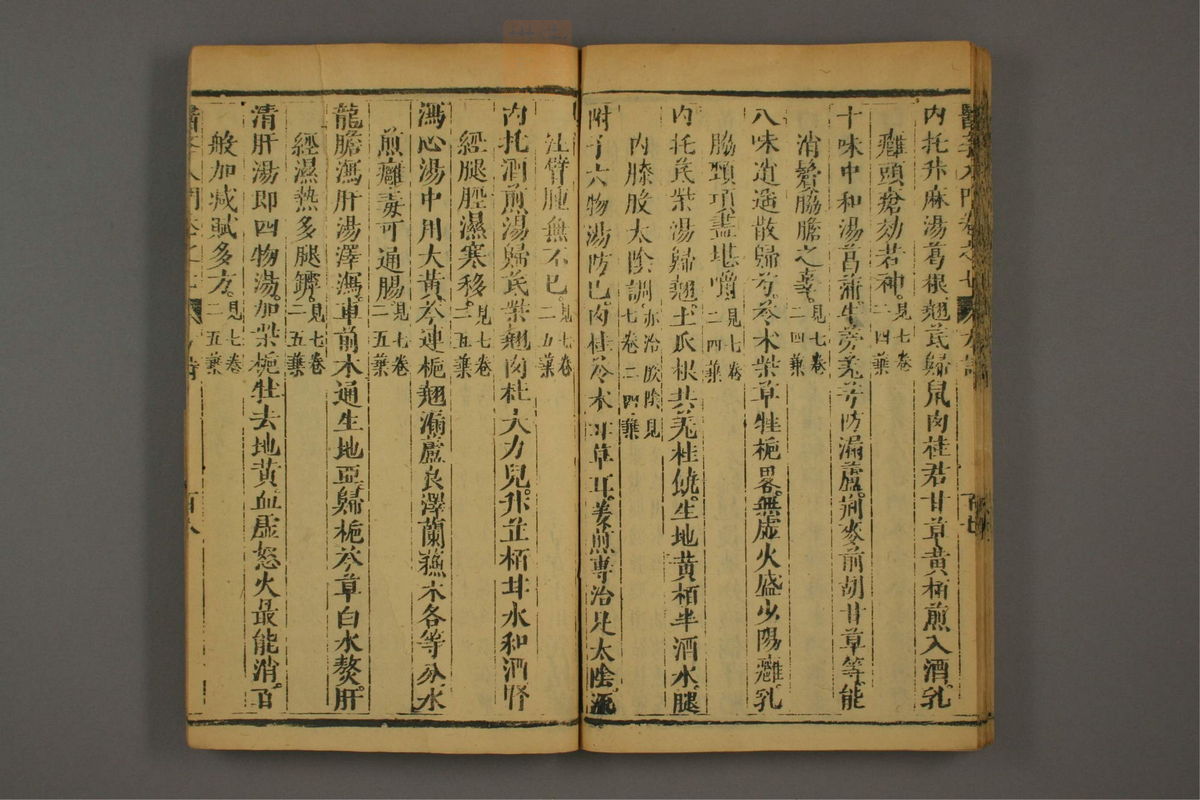 內托升麻湯葛根翹芪歸鼠肉桂君甘草黃栢煎入酒乳
癰頭瘡効若神見七卷二四葉
十味中和湯菖蒲牛蒡羌芎防漏蘆荊麥前胡甘草等能
消鬢脇膽之辜見七卷二四葉
八味逍遥散歸芍苓术柴草牡梔畧無虛火盛少陽癰乳
脇頸項盡堪嚼見七卷二四葉
內托芪柴湯歸翹土瓜根共羌桂饒生地黃栢半酒水腿
內膝股太陰調亦治厥陰見七卷二四葉
附子六物湯防巳肉桂苓术耳草耳姜煎專治足太陰流
注臂腫無不已二五葉見七卷
內托酒煎湯歸芪柴翹肉桂大力兒升芷栢耳水和酒腎
經腿脛濕寒移二五葉見七卷
瀉心湯中用大黃苓連梔翹漏蘆良澤蘭蘇木各等分水
煎癰毒可通腸二五葉見七卷
龍膽瀉肝湯澤瀉車前木通生地亞歸梔苓草白水熬肝
經濕熱多腿髀二五葉見七卷
清肝湯即四物湯加柴梔牡去地黃血虛怒火最能消百
般加减賦多方二五葉見七卷
百八